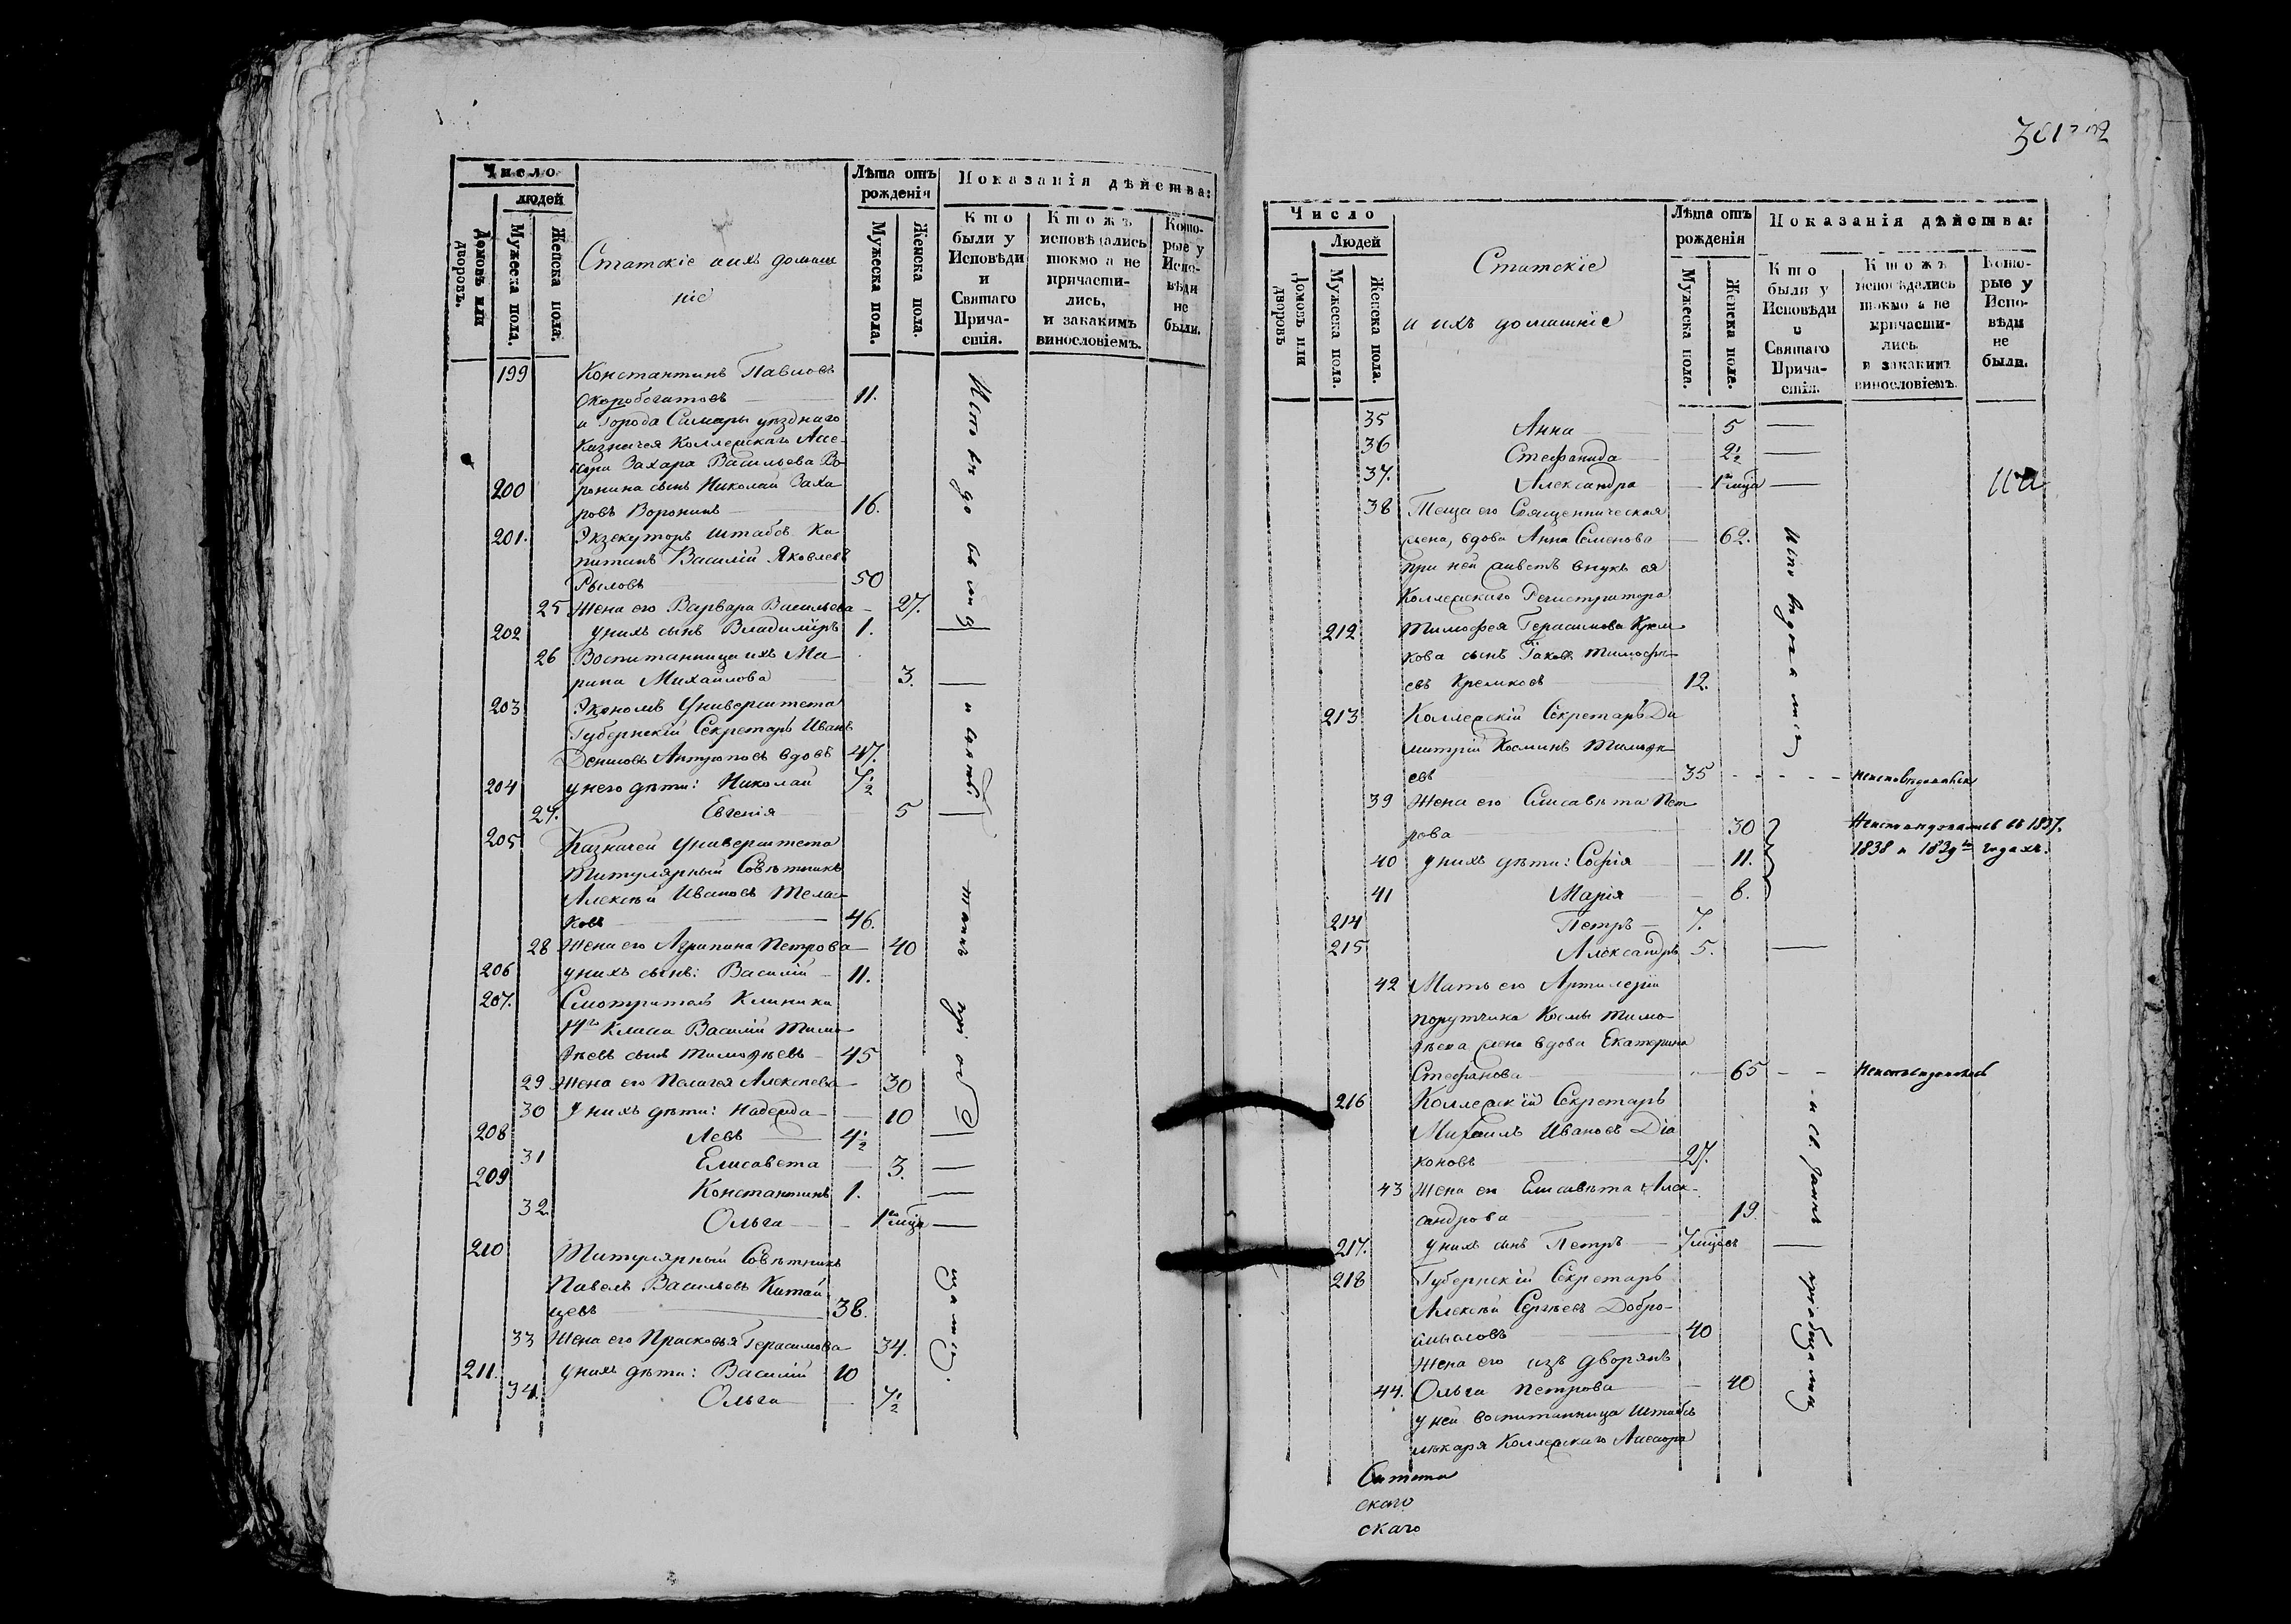 Число
людей
Домовъ или дворовъ.
Мужеска пола.
Женска пола.
Статскіе и ихъ домаш
ніе
Лѣта отъ рожденія
Мужеска пола.
Женска пола.
Показанія дѣйства:
Кто были у Исповѣди и Святаго Прича-стія.
Ктожъ исповѣдались токмо а не причасти-лись, и закакимъ винословіемъ.
Кото-рые у Испо-вѣди не были.
199 Константинъ Павловъ
Скоробогатовъ 11.
и Города Самары уѣзднаго
Казначея Коллежскаго Ассе-
сора Захара Васильева Во-
200 ронина сынъ Николай Заха
ровъ Воронинъ 16.
201. Экзекуторъ Штабсъ Ка
питанъ Василій Яковлевъ
Рыловъ 50
25 Жена его Варвара Васильева 27.
202 у нихъ сынъ Владиміръ 1.
26 Воспитанница ихъ Ма-
рина Михайлова 3.
203 Экономъ Университета
Губернскій Секретарь Иванъ
Денисовъ Антроповъ вдовъ 47.
204 у него дѣти: Николай 7½
27. Евгенія 5
205 Казначей Университета
Титулярный Совѣтникъ
Алексѣй Ивановъ
ковъ 46.
28 Жена его Агрипина Петрова 40
206 у нихъ сынъ: Василій 11.
207. Смотритель Клиники
14го Класса Василій Тимо-
ѳеевъ сынъ Тимоѳеевъ 45
29 Жена его Пелагея Алексѣева 30
30 У нихъ дѣти: Надежда 10
208 Левъ 4½
31 Елисавета 3.
209 Константинъ 1.
32. Ольга 1 мца
210 Титулярный Совѣтникъ
Павелъ Васильевъ Китай
цевъ 38.
33 Жена его Прасковья Герасимова 34.
211. у нихъ дѣти: Василій 10
34. Ольга 7½
301
Число
Людей
Домовъ или дворовъ
Мужеска пола.
Женска пола.
Статскіе
и ихъ домашніе
Лѣта отъ рожденія
Мужеска пола.
Женска пола.
Показанія дѣйства:
Кто были у Исповѣди и Святаго Прича-стія.
Ктожъ исповѣдались токмо а не причасти-лись и закакимъ винословіемъ.
Кото-рые у Испо-вѣди не были.
35 Анна 5
36 Стефанида 2½
37. Александра 1 мца
38 Теща его Священническая
жена, вдова Анна Семенова 62.
при ней живетъ внукъ ея
Коллежскаго Регистратора
212 Тимофея Герасимова Крем
кова сынъ Іаковъ Тимофе-
евъ Кремковъ 12.
213 Коллежскій Секретарь Ди
митрій Косминъ Тимоѳе-
евъ 35 Неисповѣдывался
39 Жена его Елисавѣта Пет
рова 30 Неисповѣдовались въ 1837.
40 у нихъ дѣти: Софія 11. 1838 и 1839мъ годахъ.
41 Марія 8.
214 Петръ 7.
215 Александръ 5.
42 Мать его Артилеріи
порутчика Космы Тимо-
ѳеева жена вдова Екатерина
Стефанова 65 Неисповѣдовалась
216 Коллежскій Секретарь
Михаилъ Ивановъ Діа
коновъ 27.
43 Жена его Елисавѣта Алек-
сандрова 19.
217. у нихъ сынъ Петръ 7 мцевъ
218 Губернскій Секретарь
Алексѣй Сергѣевъ Добро-
смысловъ 40
Жена его изъ дворянъ
44. Ольга Петрова 40
у ней воспитанница Штабсъ
лѣкаря Коллежскаго Ассесора
скаго
скаго